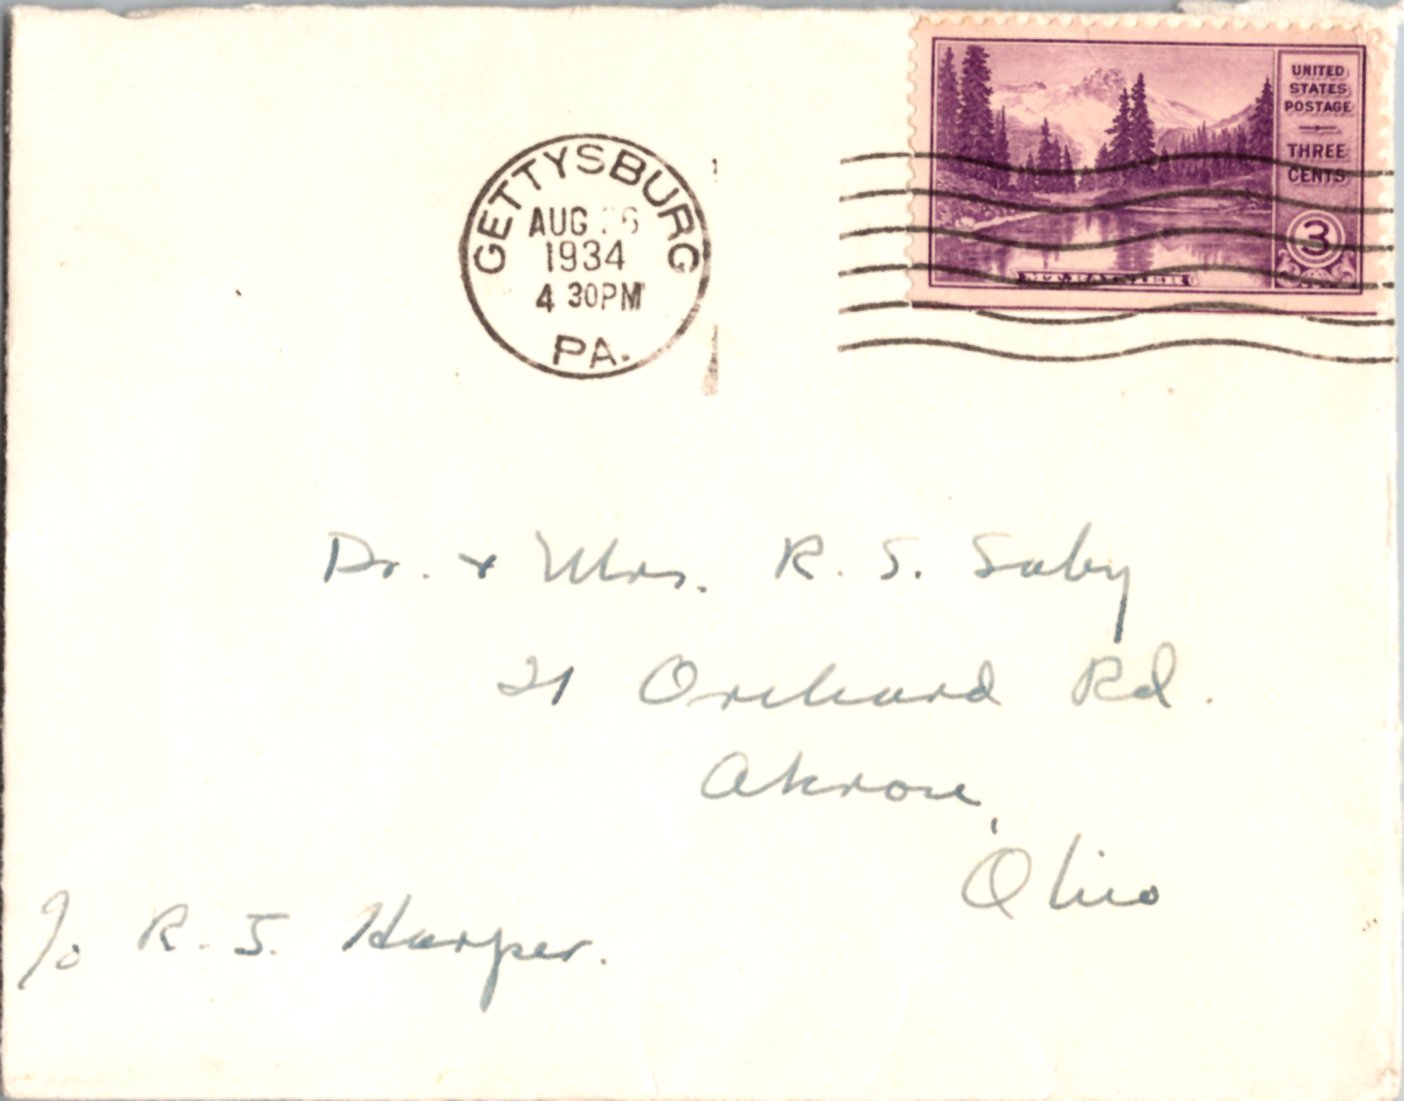 UNITED
STATES
POSTAGE
THREE
CENTS
3
MT. RAINIER
GETTYSBURG
AUG 26
1934
4 30PM
PA.
Dr. & Mrs. R. S. Saby
21 Orchard Rd.
Akron,
Ohio
℅ R. J. Harper.